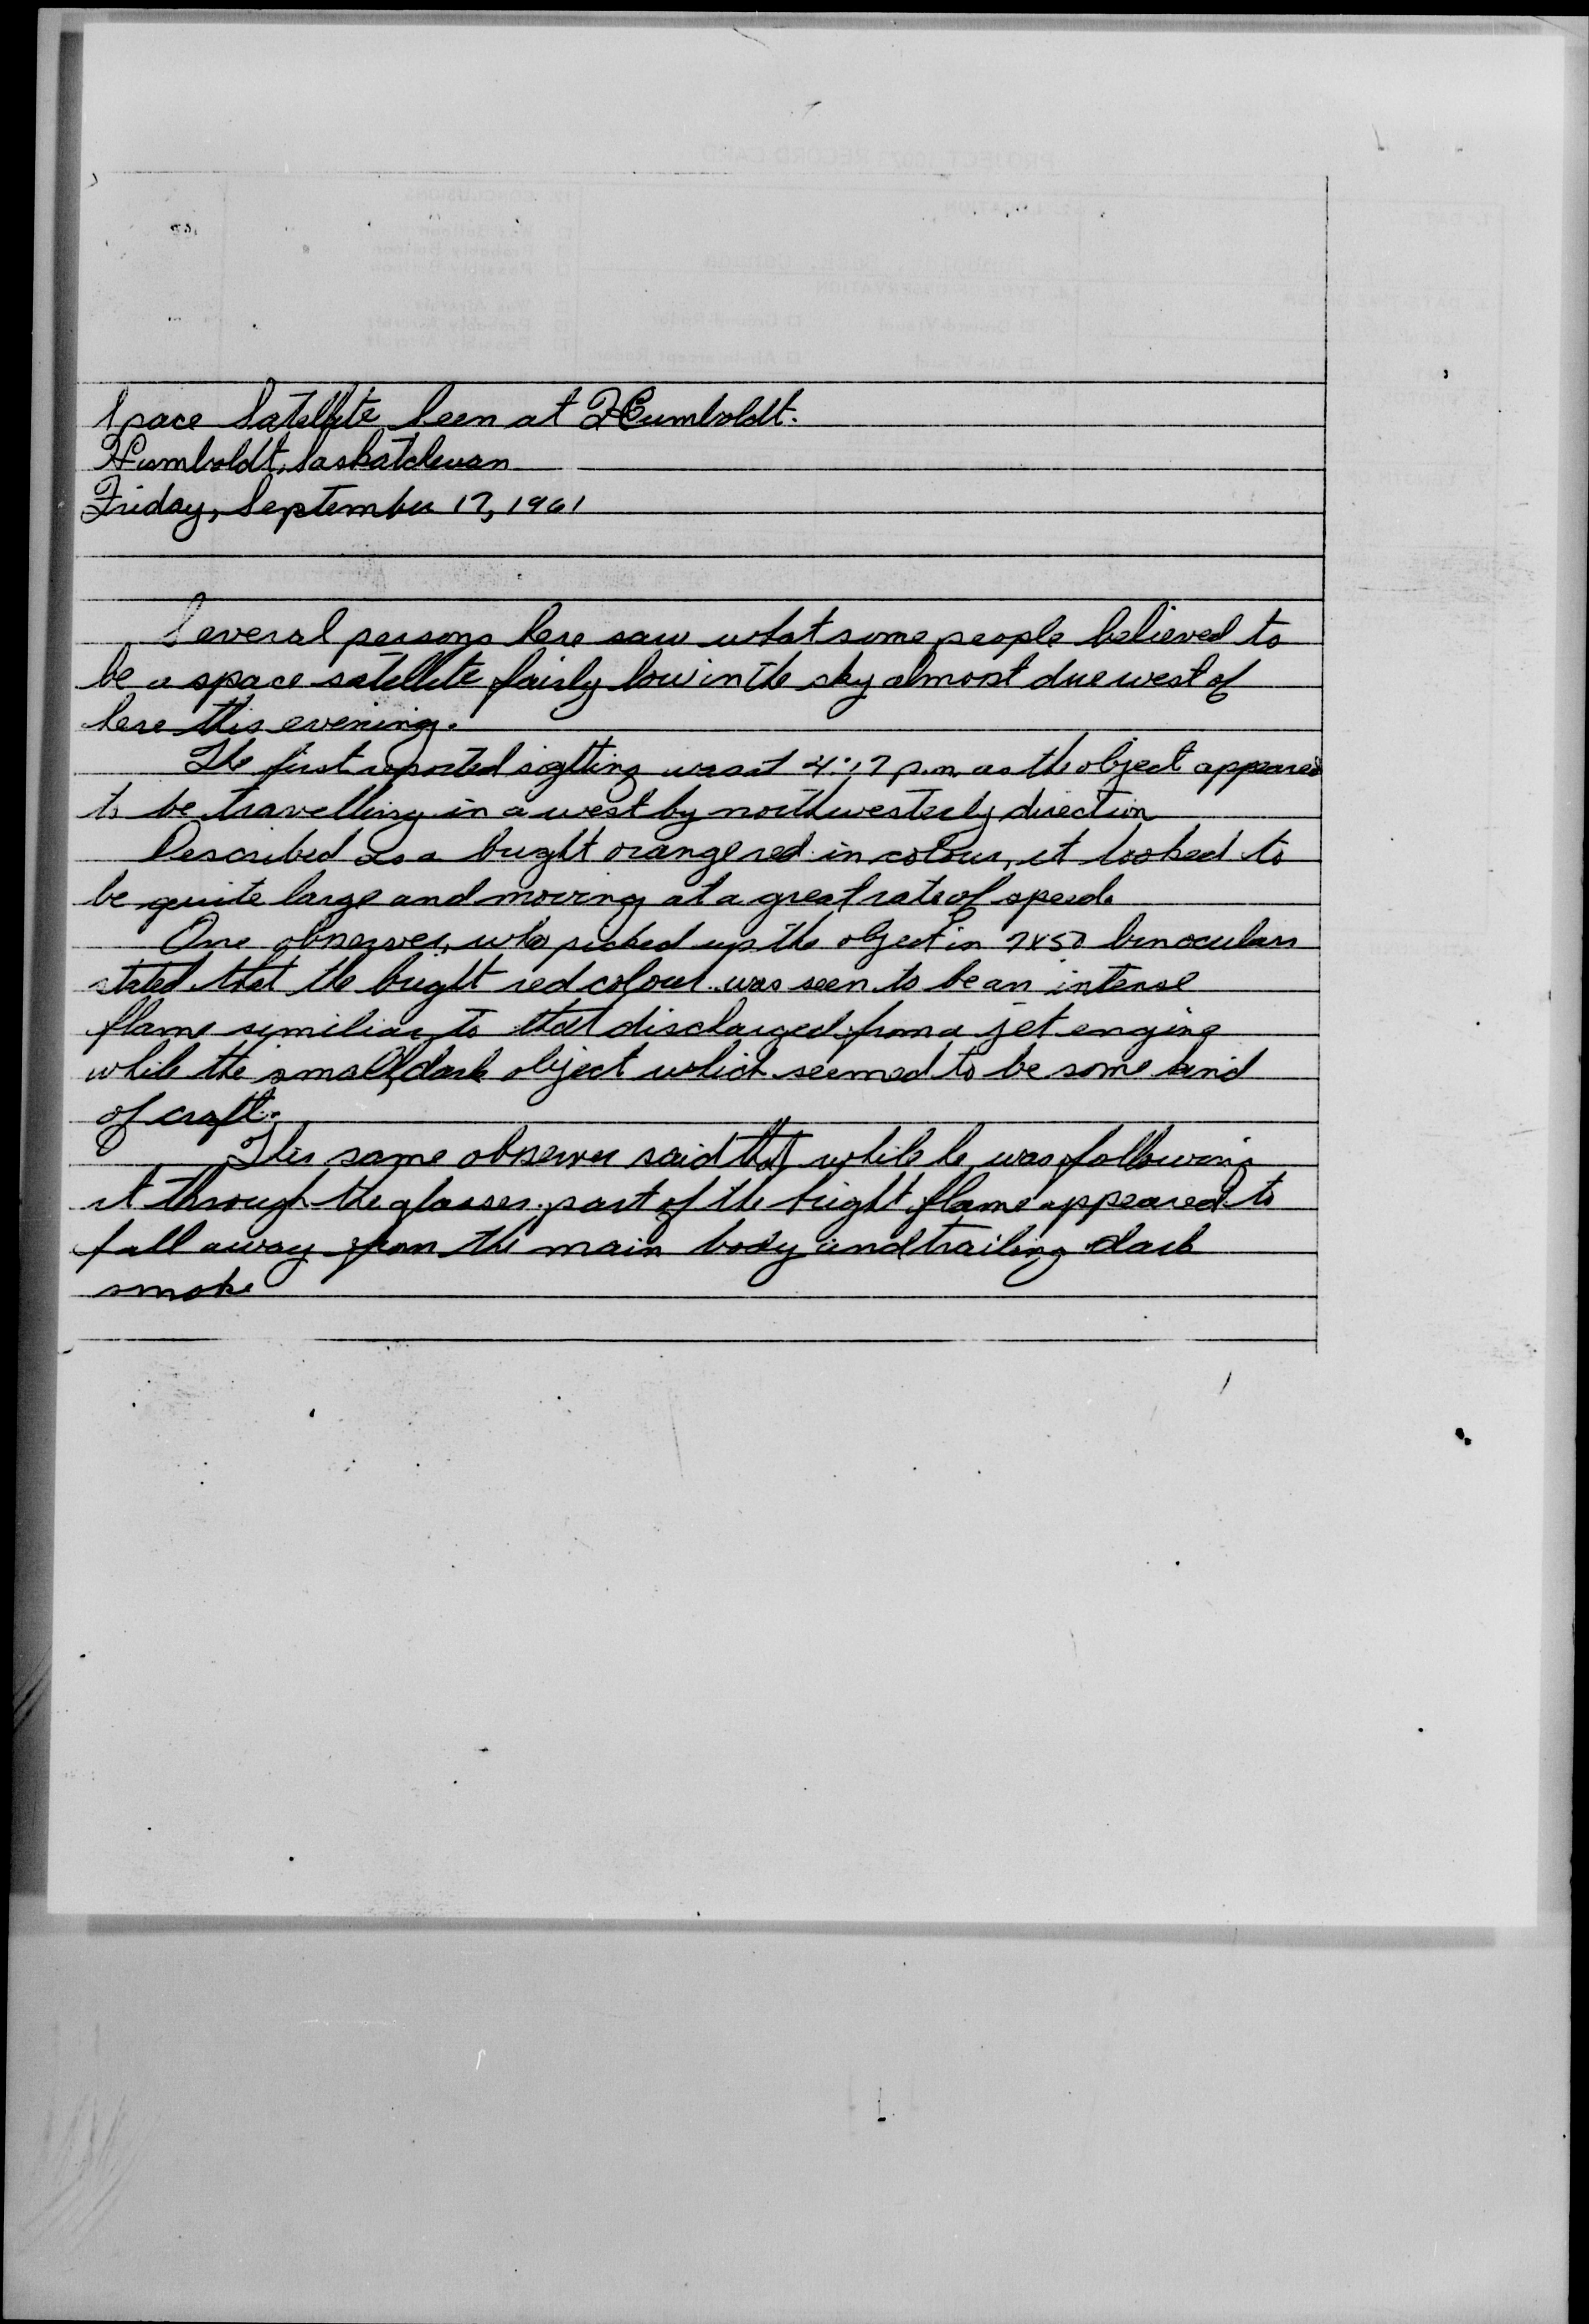 Space Satellite Seen at Humboldt.
Humboldt, Saskatchewan
Friday, September 17, 1961
Several persons here saw what some people believed to
be a space satellite fairly low in the sky almost due west of
here this evening.
The first reported sighting was at 4:17 p.m. as the object appeared
to be travelling in a west by northwesterly direction
Described as a bright orange red in colour, it looked to
be quite large and moving at a great rate of speed.
One observer, who picked up the object in 7x50 binoculars
stated that the bright red colour was seen to be an intense
flame similiar to that discharged from a jet engine
while the small, dark object which seemed to be some kind
of craft.
This same observer said that while he was following
it through the glasses part of the bright flame appeared to
fall away from the main body and trailing dark
smoke